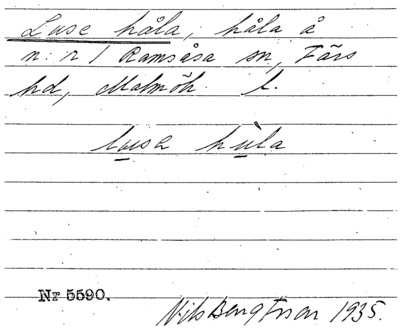 Luse håla, håla å
n:r 1 Ramsåsa sn, Färs
hd, Malmöh. l.
lusa hula
Nr 5590.
Nils Bengtsson 1935.